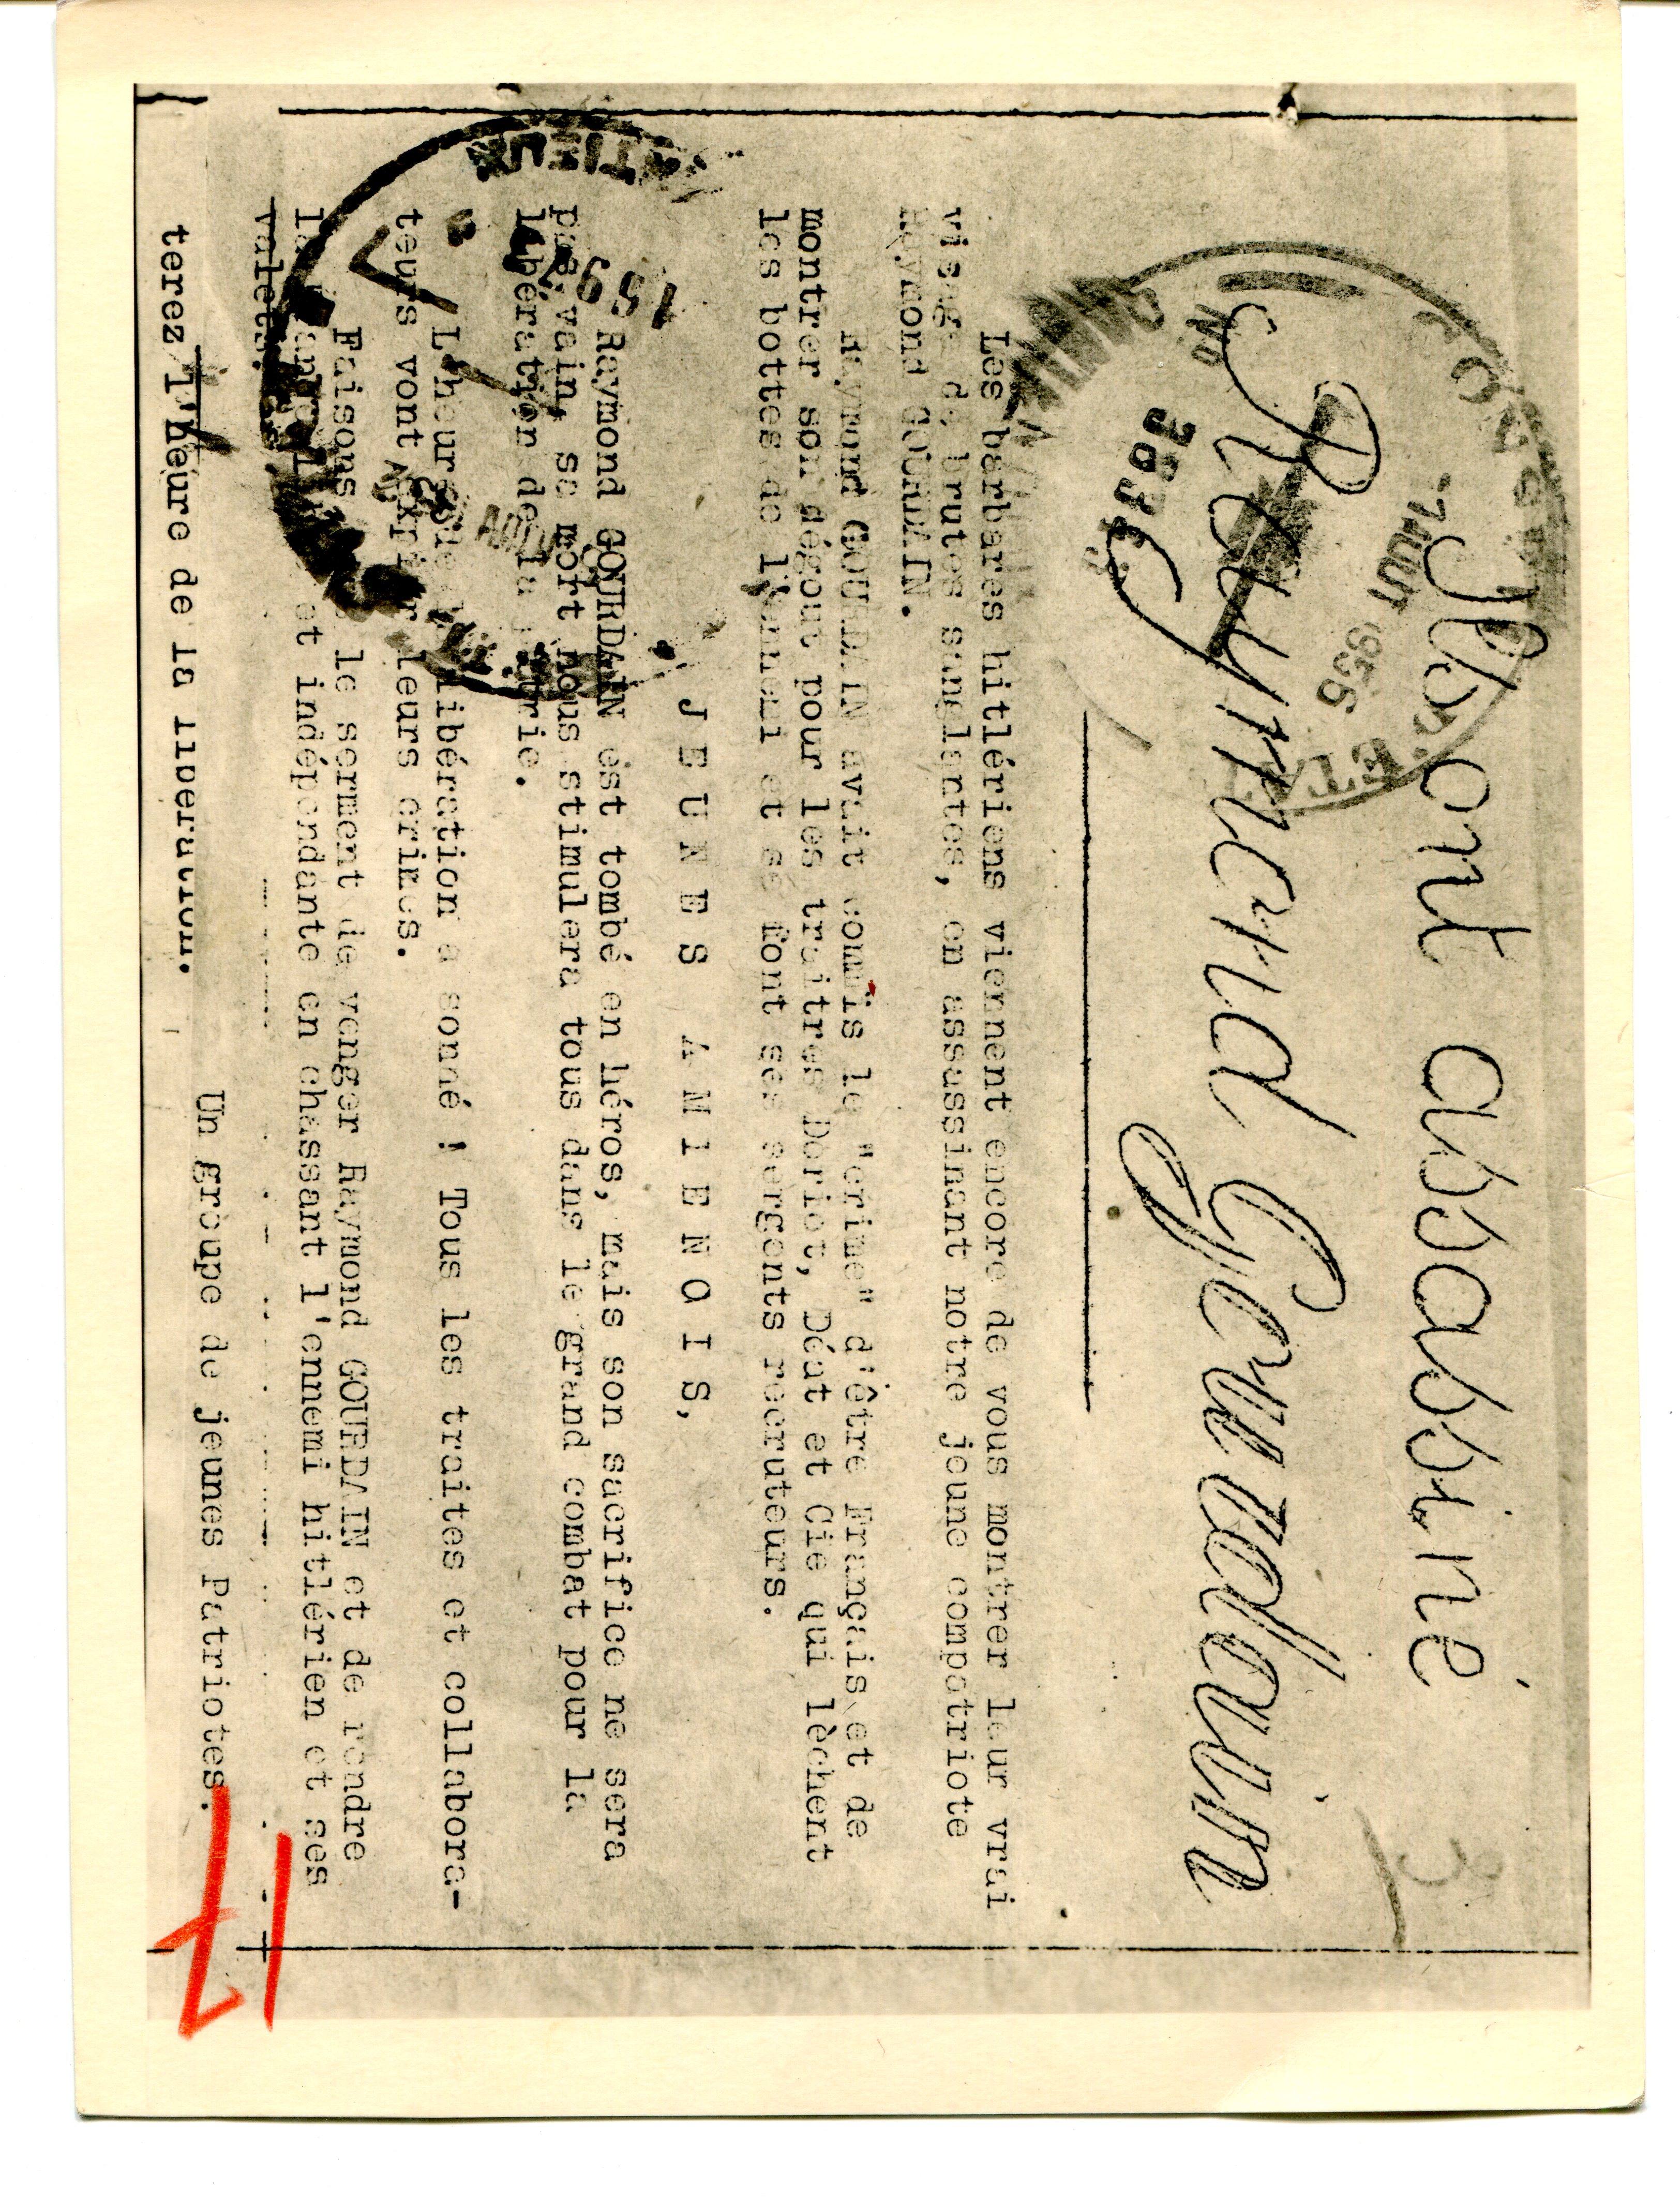 Ils ont assassiné
Raymond Gourdain
Les barbares hitlériens viennent encore de vous montrer leur vrai
visage de brutes sanglantes, en assassinant notre jeune compatriote
Raymond GOURDAIN.
Raymond GOURDAIN avait commis le "crime" d'être Français et de
montrer son dégout pour les traitres Doriot, Déat et Cie qui lèchent
les bottes de l'ennemi et se font ses sergents recruteurs.
JEUNES AMIENOIS,
Raymond GOURDAIN est tombé en héros, mais son sacrifice ne sera
pas vain, se mort nous stimulera tous dans le grand combat pour la
libération de la patrie.
L'heure de la libération a sonné ! Tous les traites et collabora-
teurs vont expier leurs crimes.
Faisons le serment de venger Raymond GOURDAIN et de rendre
la et indépendante en chassant l'ennemi hitlérien et ses
valets.
Un groupe de jeunes Patriotes.
terez l'heure de la libération.
7 JUIN 1956
3836
17